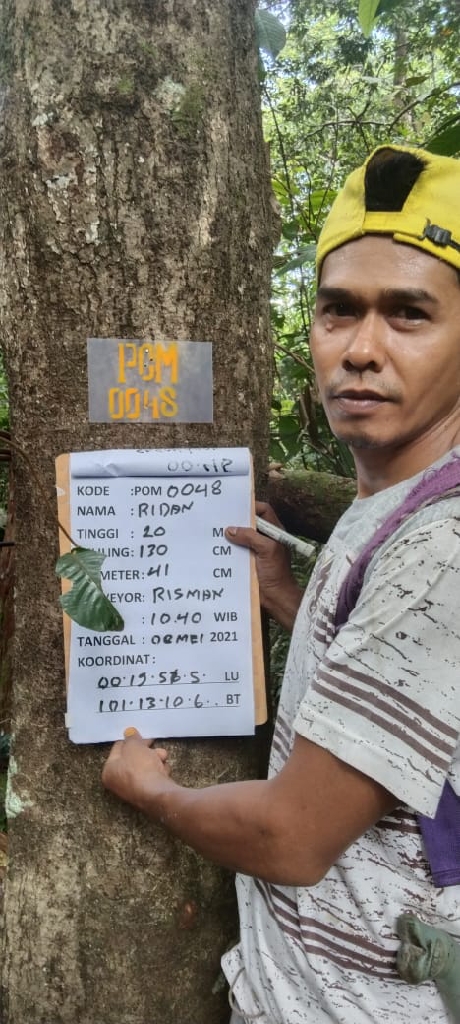 POM
0048
KODE :POM 0048
NAMA : RIDAN
TINGGI : 20 M
LING: 130 CM
METER: 41 CM
EYOR: RISMAN
: 10.40 WIB
TANGGAL : 08 MEI 2021
KOORDINAT:
00·19·58·5· LU
101·13·10·6.. BT